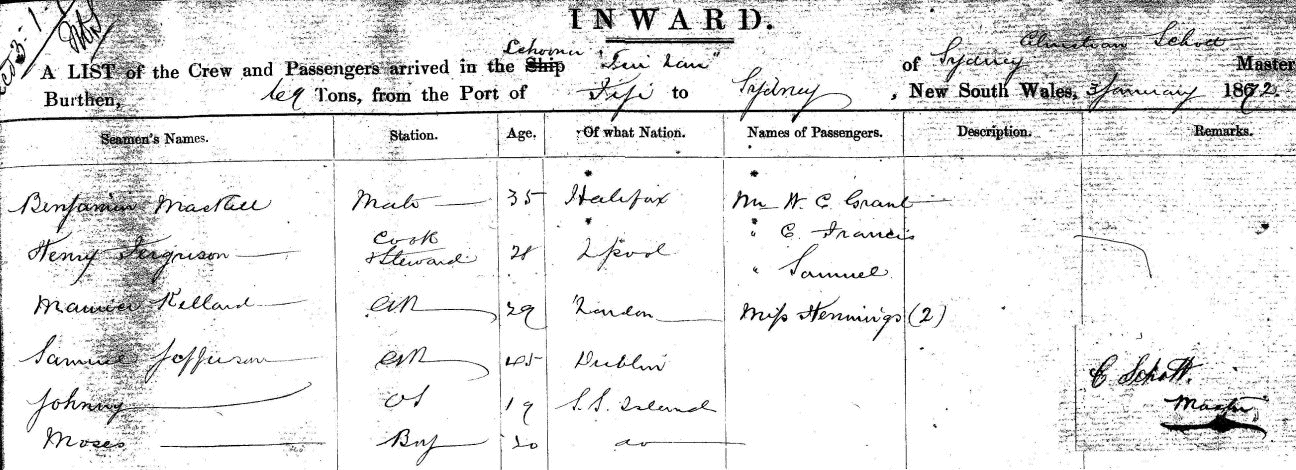 INWARD.
Schooner
A LIST of the Crew and Passengers arrived in the Ship of Sydney Christian Schott Master
Burthen, 69 Tons, from the Port of Fiji to Sydney, New South Wales, 3 January 1872
Seamen's Names. Station. Age. Of what Nation. Names of Passengers. Description. Remarks.
Benjamin Station Mate 35 Halifax Mr W. C. Grant
Henry Ferguson Cook & Steward 28 Lpool " C. Francis
" Samuel
Maurice Kellard AB 29 London Miss Hennings (2)
Samuel Jefferson AB 45 Dublin
Johnny OS 19 S.S. Island
Moses Boy 20 do
C Schott.
Master